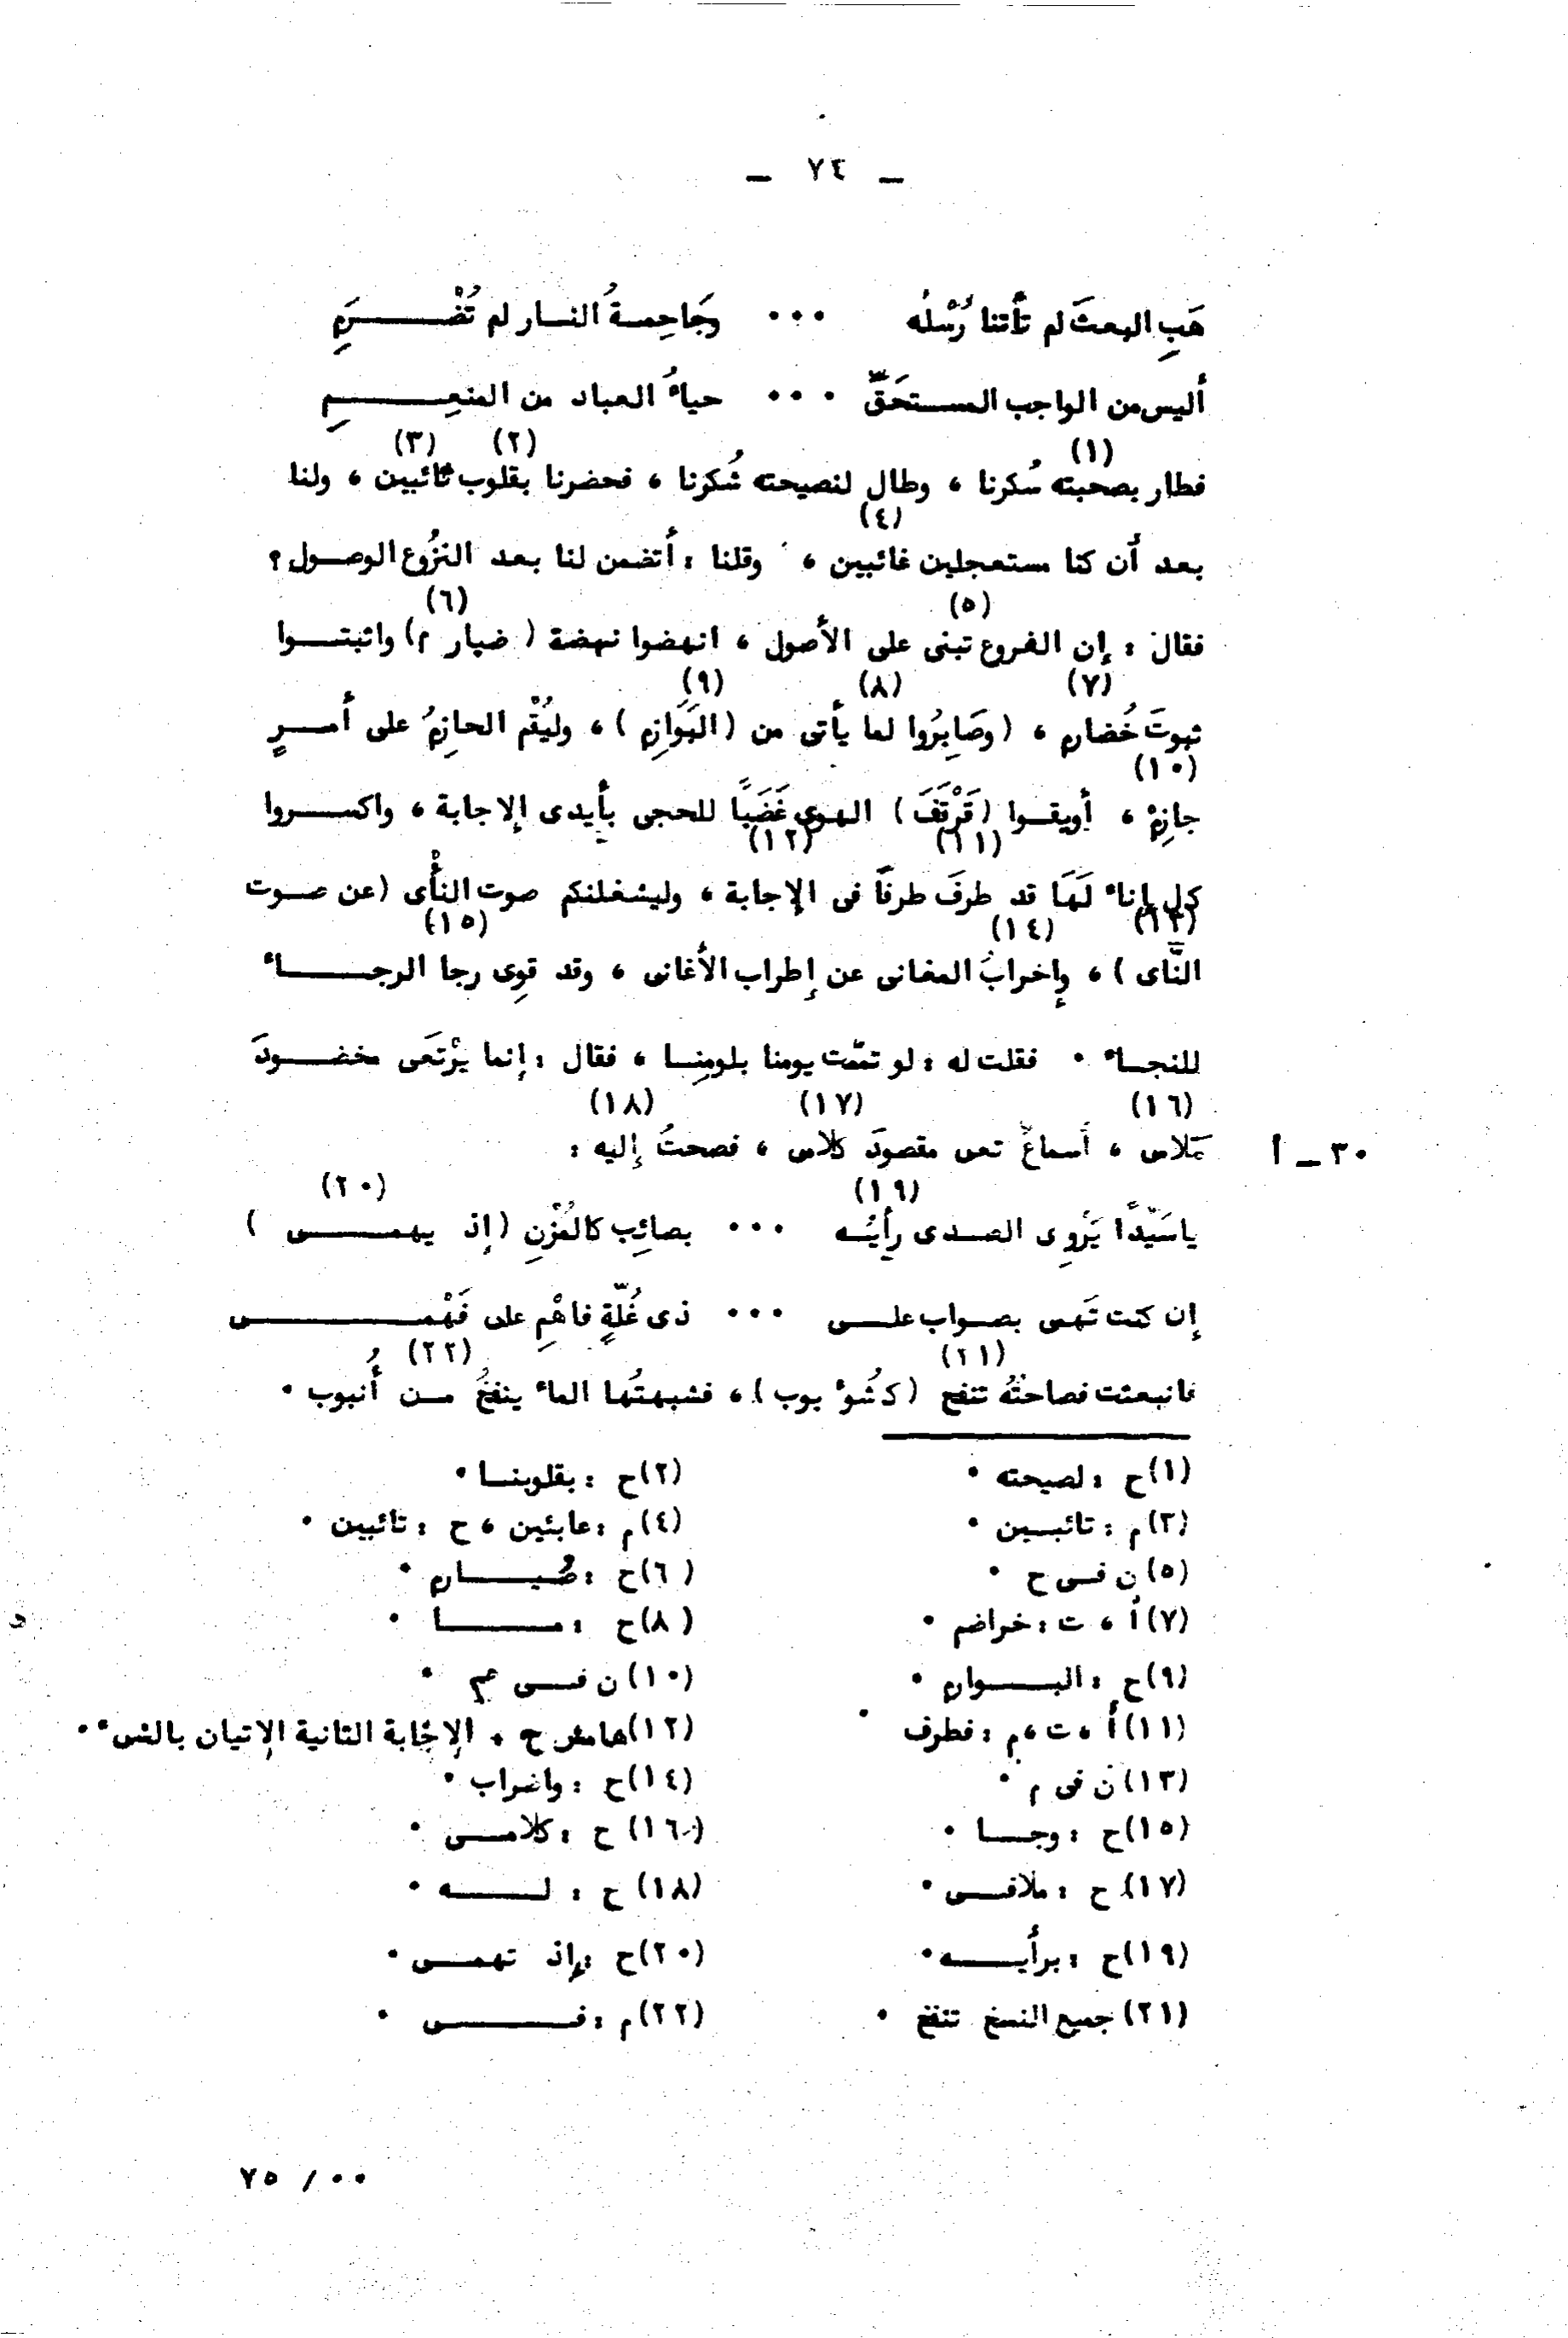 ـ ٧٤ ـ
هَبِ البعثَ لم تأتنا رُسْلُه ٠٠٠ وجَاحِمةُ النار لم تُضْرَمِ
أليس من الواجب المستحَقِّ ٠٠٠ حياءُ العباد من المنعِمِ
(١) (٢) (٣)
فطار بصحبته سُكرنا ، وطال لنصيحته شُكرنا ، فحضرنا بقلوب تائبين ، ولنا
(٤)
بعد أن كنا مستعجلين غائبين ، وقلنا : أتضمن لنا بعد النزُوع الوصول ؟
(٥) (٦)
فقال : إن الفروع تبنى على الأصول ، انهضوا نهضة ( ضبار م) واثبتوا
(٧) (٨) (٩)
ثبوتَ خُضارم ، (وصَابِرُوا لما يأتى من (البَوَازِم ) ، وليُقْم الحازِمُ على أمرٍ
(١٠)
جازِمْ ، أويقوا (قَرْتَفَ) الهوى غَضَبًا للحجى بأيدى الإجابة ، واكسروا
(١١) (١٢)
كل إناء لَهَا قد طرفَ طرفًا فى الإجابة ، وليشغلنكم صوت النأْى (عن صوت
(١٣) (١٤) (١٥)
النَّاى ) ، وإخرابُ المغانى عن إطراب الأغانى ، وقد قوِى رجا الرجاء
للنجاء ٠ فقلت له : لو تممّت يومنا بلومِنا ، فقال : إنما يرْتَعَى مخضودَ
(١٦) (١٧) (١٨)
٣٠ ـ أ كَلاس ، أسماعٌ تعى مقصودَ كلامى ، فصحتُ إليه :
(١٩) (٢٠)
ياسَيّدًا يَروِى الصدى رأيُه ٠٠٠ بصائِب كالمُزْنِ (إذ يهمى )
إن كنت تَهمى بصواب على ٠٠٠ ذى غُلّةٍ فاهْمِ على فَهْمى
(٢١) (٢٢)
فانبعثت فصاحتُهُ تنفح (كشُؤ بوب) ، فشبهتُها الماء ينفخُ من أُنبوب ٠
(١)ح : لصيحته ٠ (٢)ح : بقلوبنا ٠
(٣)م : تائبين ٠ (٤)م : عابثين ، ح : تائبين ٠
(٥)ن فى ح ٠ (٦)ح : ضُبارم ٠
(٧)أ ، ت : خراضم ٠ (٨)ح : ما ٠
(٩)ح : البوارم ٠ (١٠)ن فى م ٠
(١١)أ ، ت ، م : فطرف ٠ (١٢)هامش ح ، الإجَابة الثانية الإتيان بالشىء ٠
(١٣)ن فى م ٠ (١٤)ح : واضراب ٠
(١٥)ح : وجا ٠ (١٦) ح : كلامى ٠
(١٧) ح : ملافى ٠ (١٨) ح : له ٠
(١٩)ح : برأيه ٠ (٢٠)ح : إذ تهمى ٠
(٢١) جميع النسخ تنفخ ٠ (٢٢)م : فى ٠
٠٠ / ٧٥